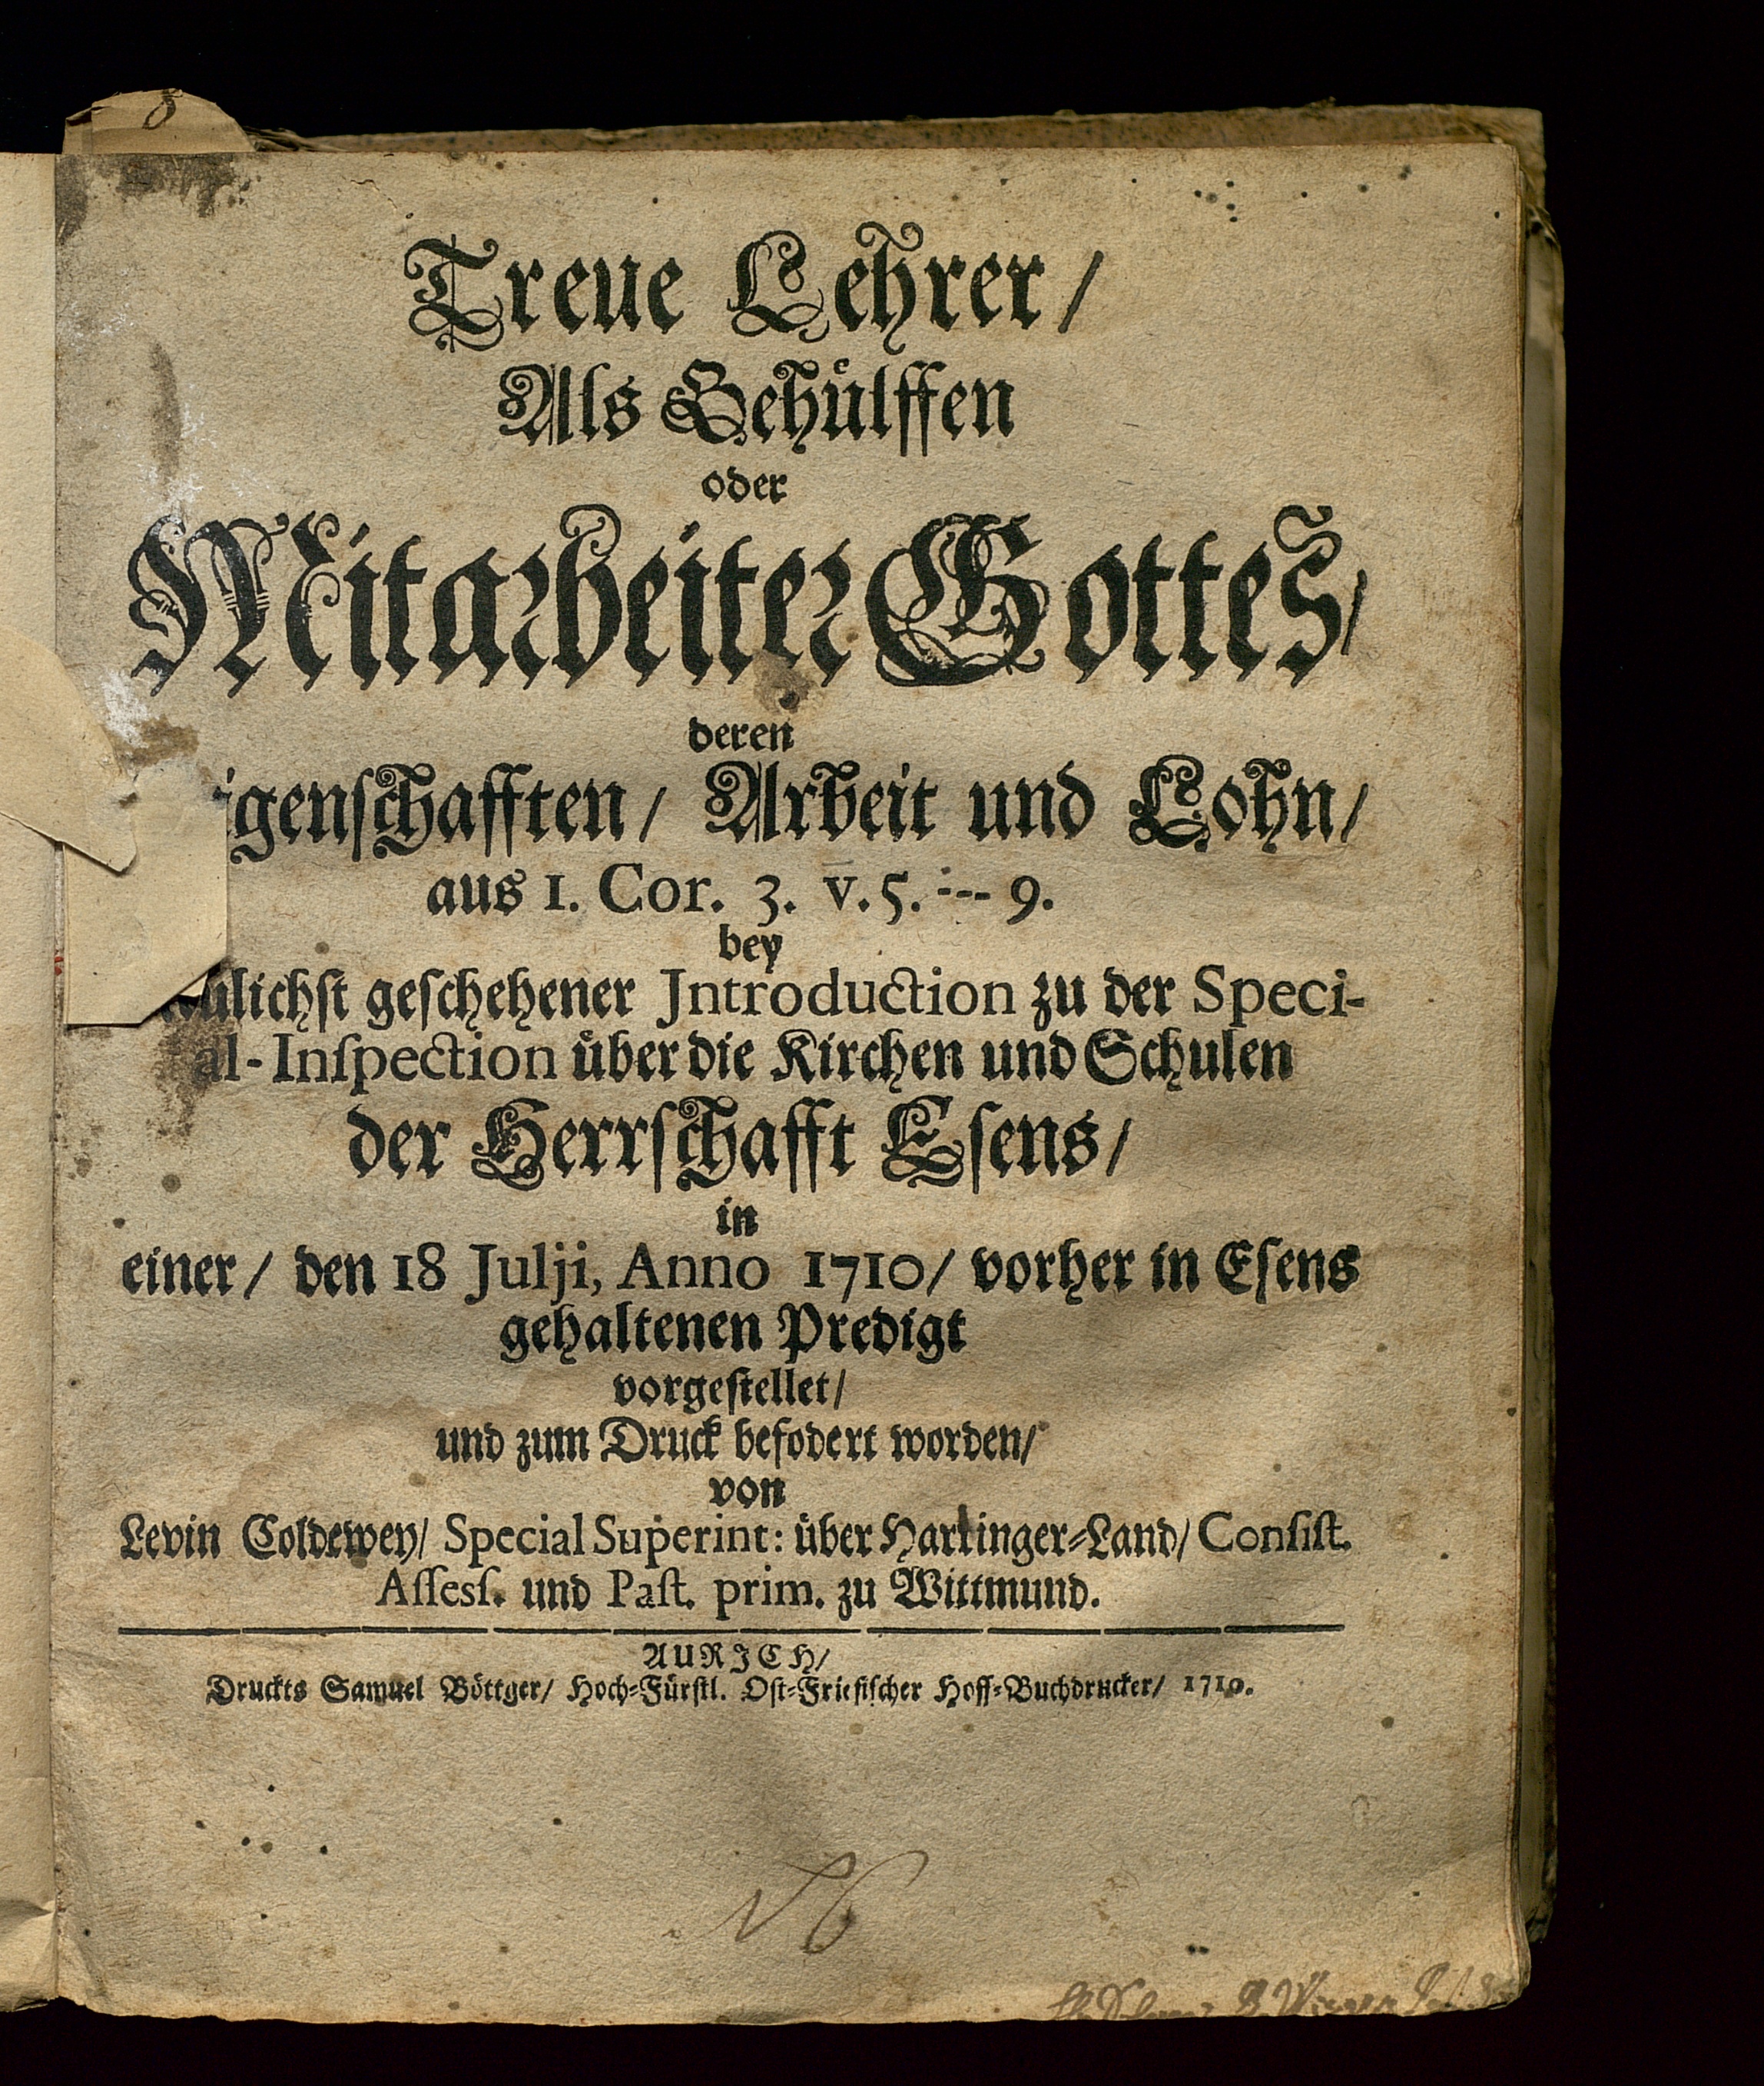 8
Treue Lehrer/
Als Gehülffen
oder
Mitarbeiter Gottes/
deren
igenschafften/ Arbeit und Lohn/
aus 1. Cor. 3. v. 5. --- 9.
bey
ülichst geschehener Introduction zu der Speci-
al-Inspection über die Kirchen und Schulen
der Herrschafft Esens/
in
einer/ den 18 Julji, Anno 1710/ vorher in Esens
gehaltenen Predigt
vorgestellet/
und zum Druck befodert worden/
von
Levin Coldewey/ Special Superint: über Harlinger-Land/ Consist.
Assess. und Past. prim. zu Wittmund.
AURICH/
Druckts Samuel Böttger/ Hoch-Fürstl. Ost-Friesischer Hoff-Buchdrucker/ 1710.